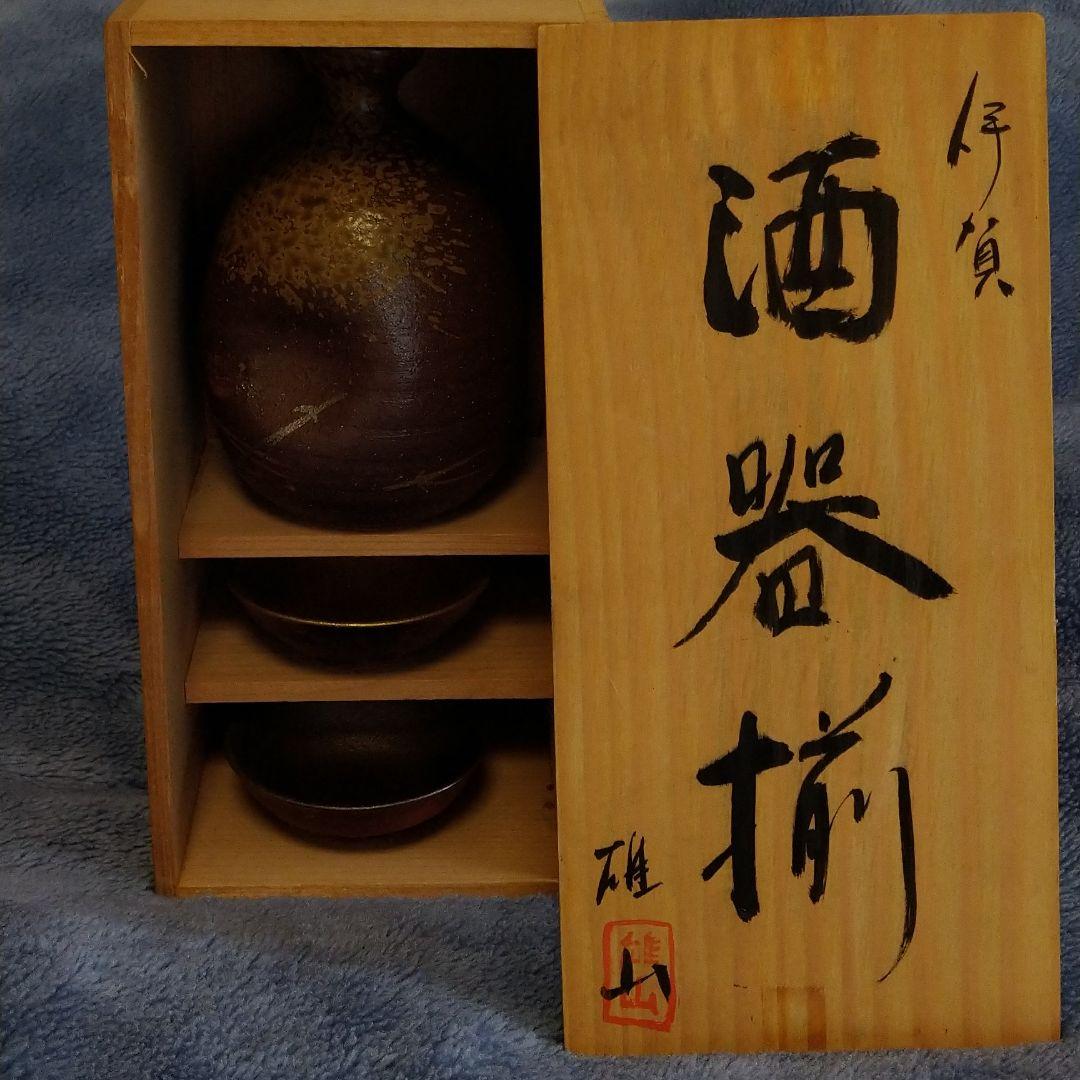 伊賀
酒器揃
雄山
雄山